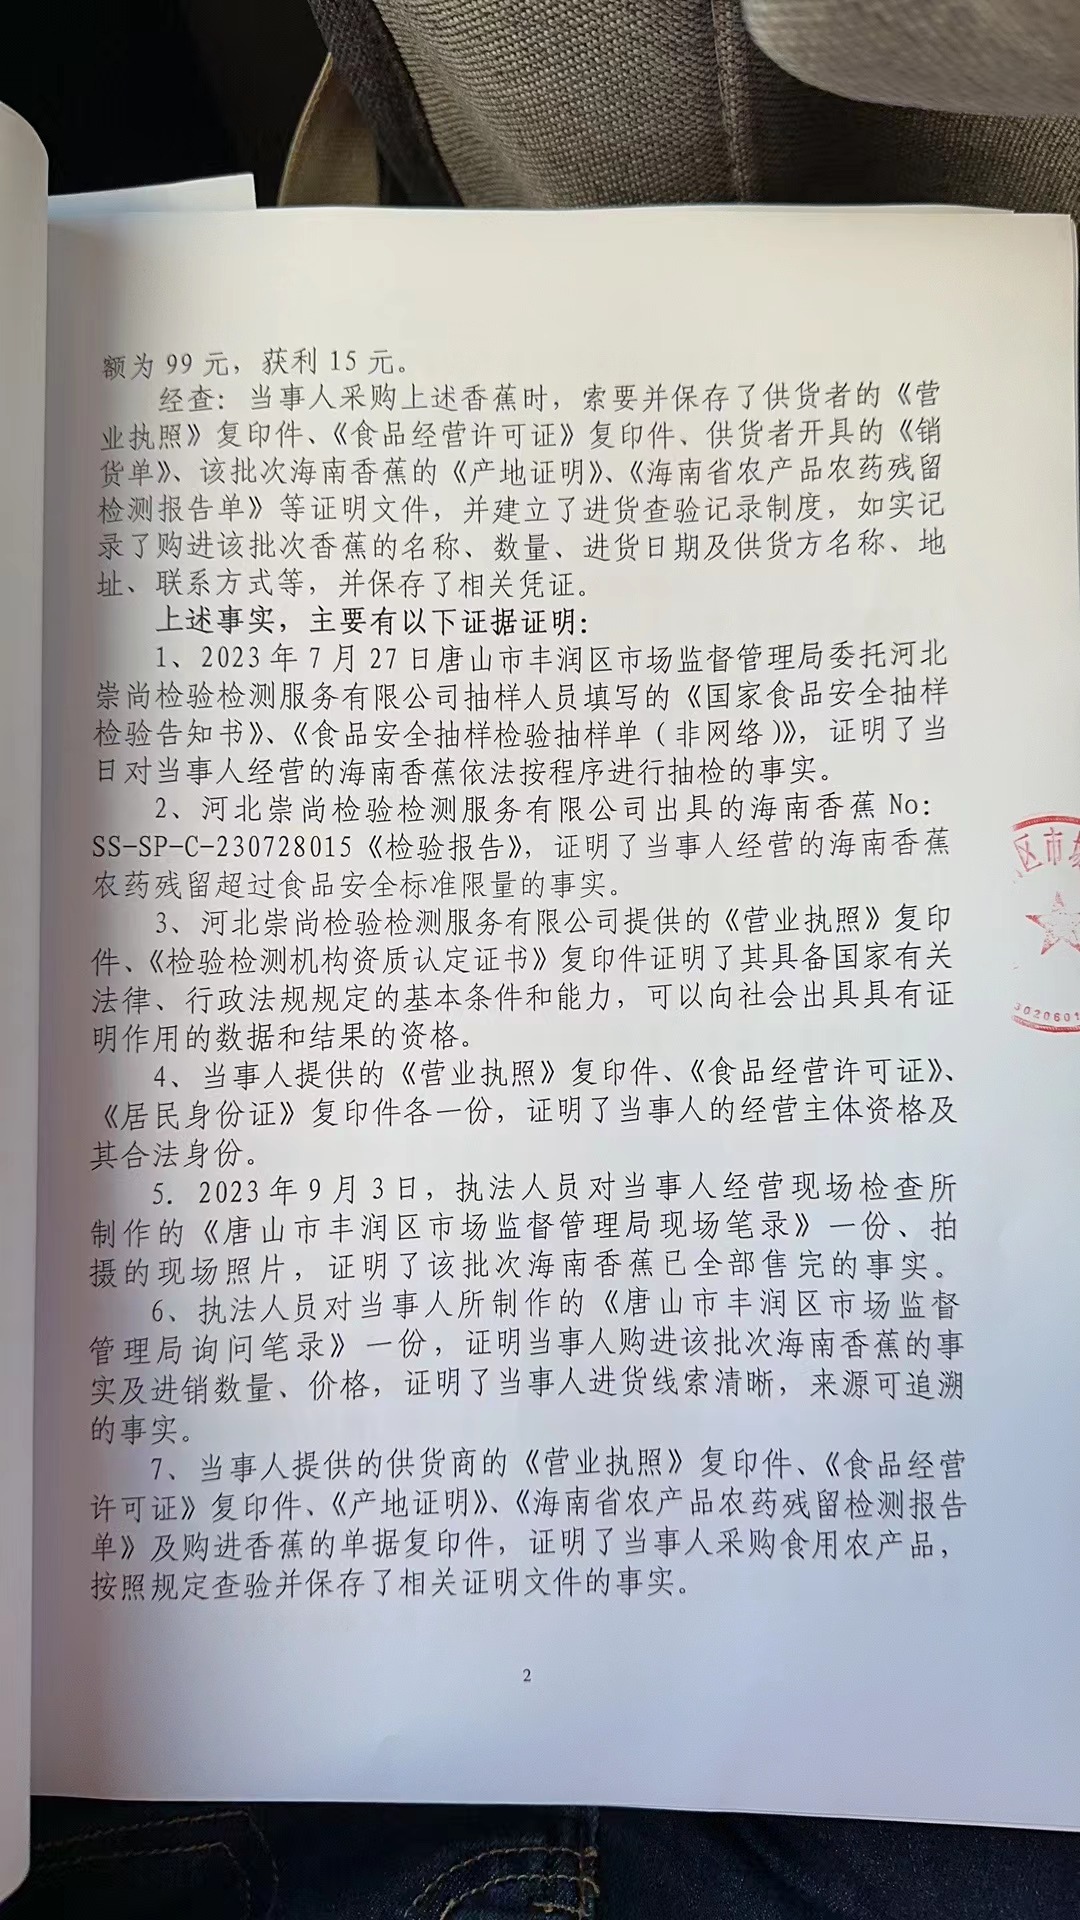 额为 99 元，获利 15 元。
经查：当事人采购上述香蕉时，索要并保存了供货者的《营
业执照》复印件、《食品经营许可证》复印件、供货者开具的《销
货单》、该批次海南香蕉的《产地证明》、《海南省农产品农药残留
检测报告单》等证明文件，并建立了进货查验记录制度，如实记
录了购进该批次香蕉的名称、数量、进货日期及供货方名称、地
址、联系方式等，并保存了相关凭证。
上述事实，主要有以下证据证明：
1、2023 年 7 月 27 日唐山市丰润区市场监督管理局委托河北
崇尚检验检测服务有限公司抽样人员填写的《国家食品安全抽样
检验告知书》、《食品安全抽样检验抽样单（非网络）》，证明了当
日对当事人经营的海南香蕉依法按程序进行抽检的事实。
2、河北崇尚检验检测服务有限公司出具的海南香蕉 No：
SS-SP-C-230728015《检验报告》，证明了当事人经营的海南香蕉
农药残留超过食品安全标准限量的事实。
3、河北崇尚检验检测服务有限公司提供的《营业执照》复印
件、《检验检测机构资质认定证书》复印件证明了其具备国家有关
法律、行政法规规定的基本条件和能力，可以向社会出具具有证
明作用的数据和结果的资格。
4、当事人提供的《营业执照》复印件、《食品经营许可证》、
《居民身份证》复印件各一份，证明了当事人的经营主体资格及
其合法身份。
5．2023 年 9 月 3 日，执法人员对当事人经营现场检查所
制作的《唐山市丰润区市场监督管理局现场笔录》一份、拍
摄的现场照片，证明了该批次海南香蕉已全部售完的事实。
6、执法人员对当事人所制作的《唐山市丰润区市场监督
管理局询问笔录》一份，证明当事人购进该批次海南香蕉的事
实及进销数量、价格，证明了当事人进货线索清晰，来源可追溯
的事实。
7、当事人提供的供货商的《营业执照》复印件、《食品经营
许可证》复印件、《产地证明》、《海南省农产品农药残留检测报告
单》及购进香蕉的单据复印件，证明了当事人采购食用农产品，
按照规定查验并保存了相关证明文件的事实。
2
区市
3020601